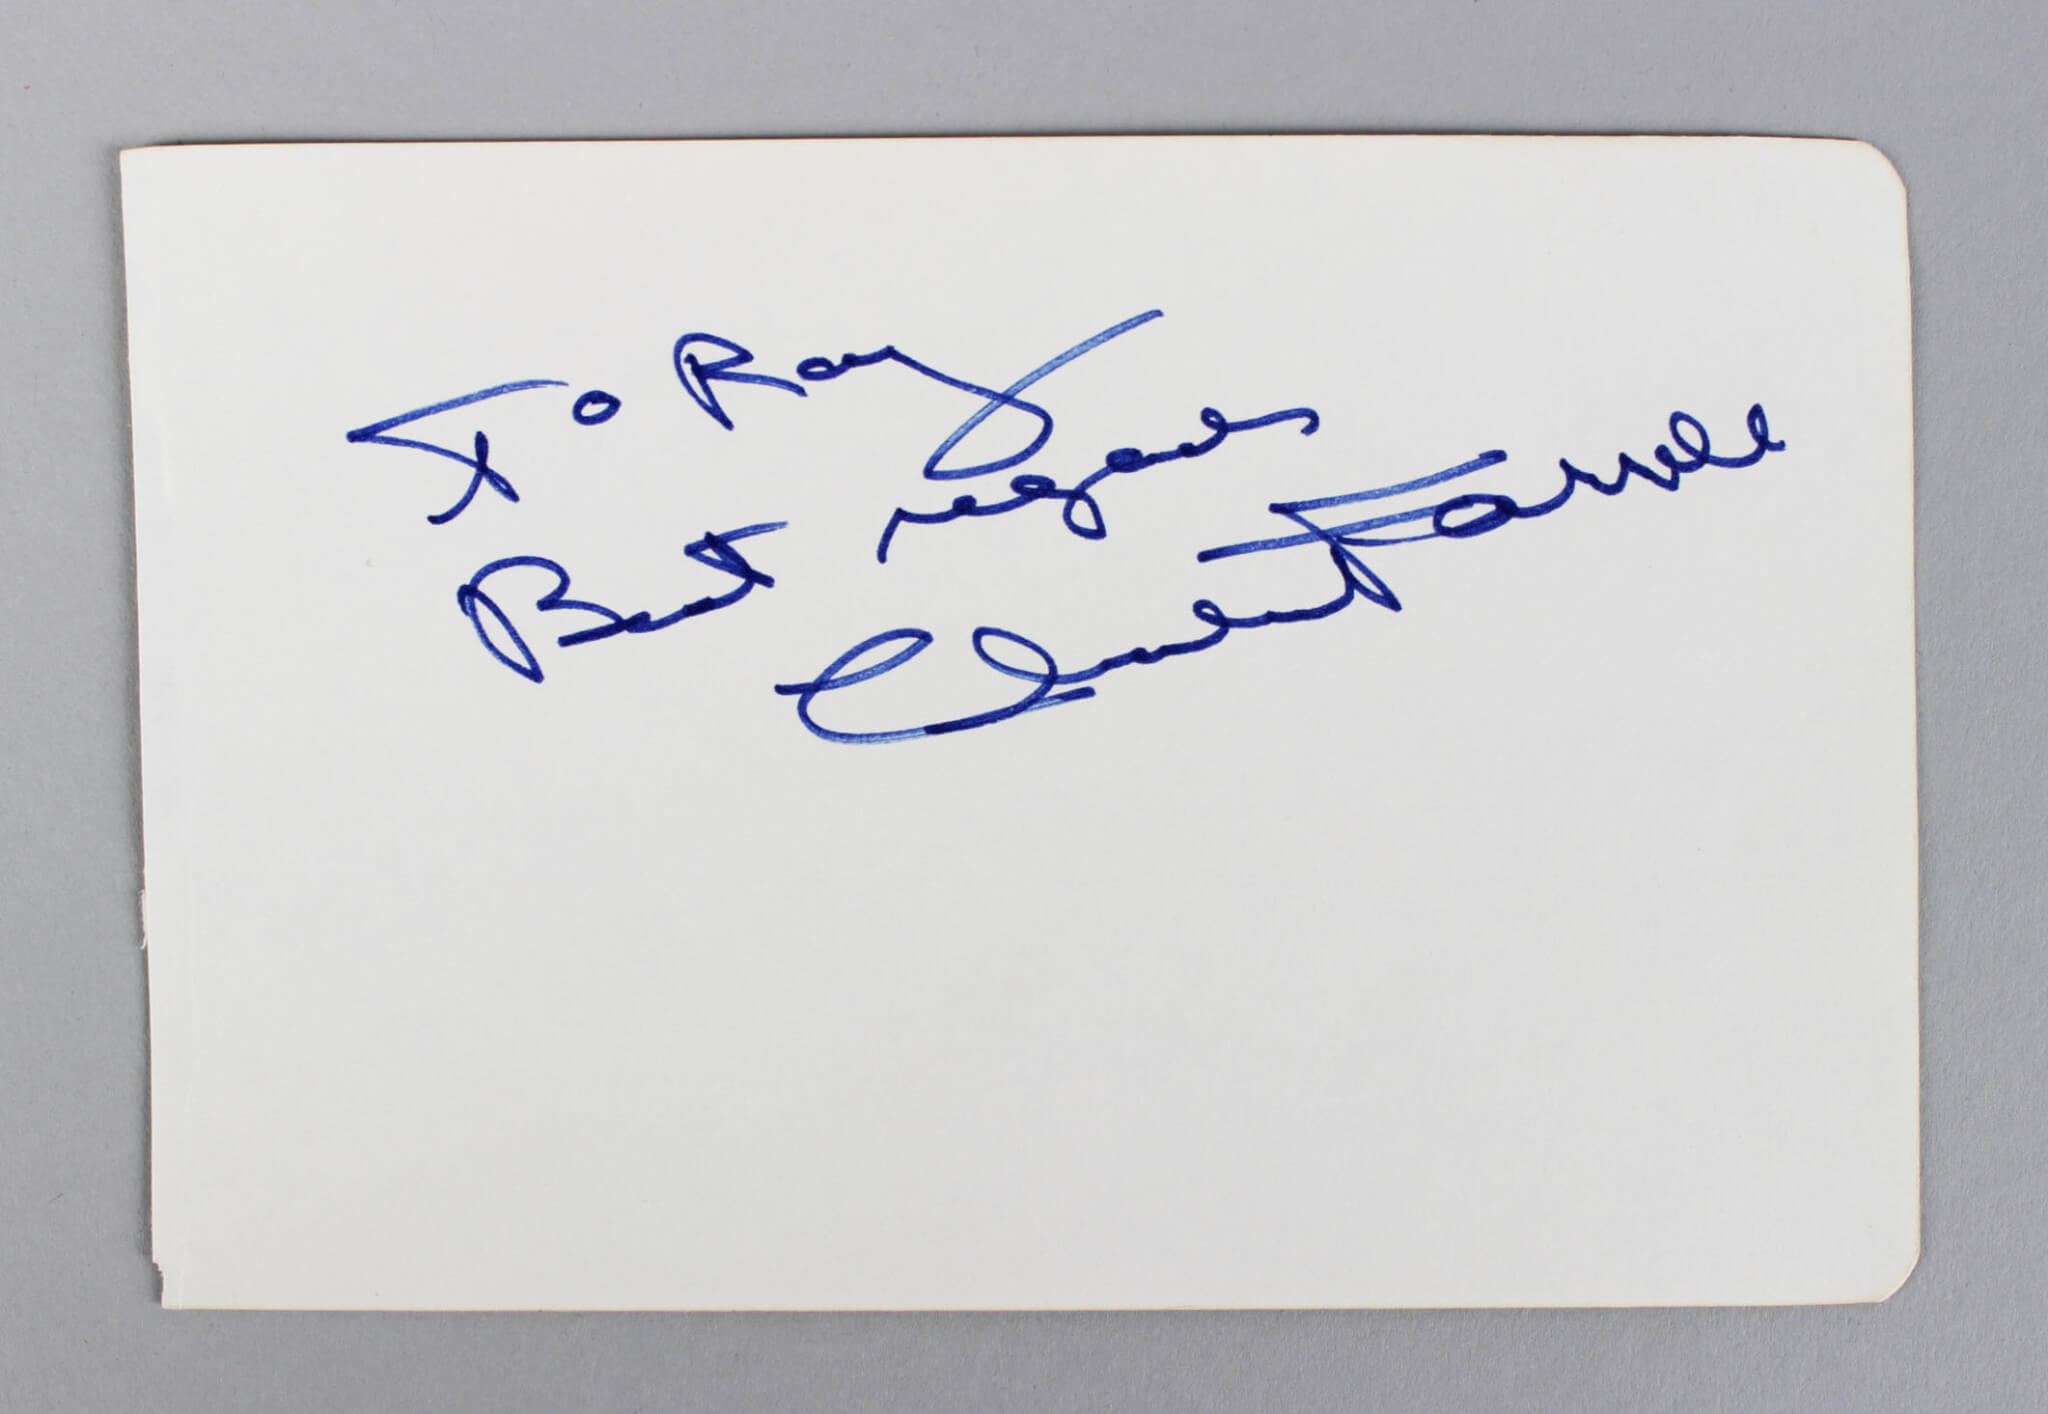 To Ray
Best regards
Charles Farrell